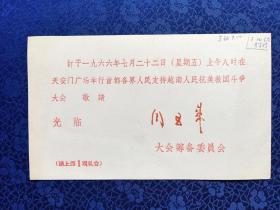 訂于一九六六年七月二十二日（星期五）上午八时在
天安门广场举行首都各界人民支持越南人民抗美救国斗争
大会　敬請
光临
大会籌备委員会
（請上西1观礼台）